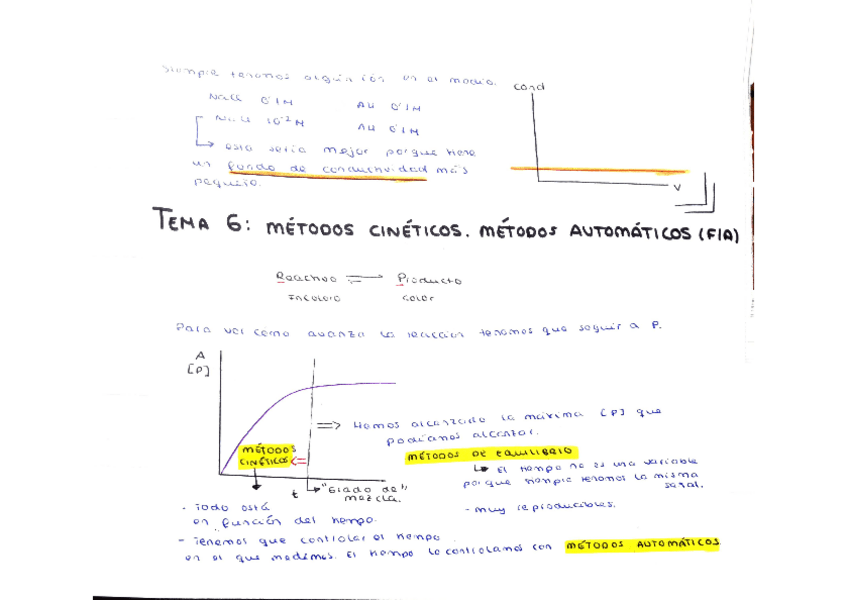 Siempre tenemos algún ión en el medio.
cond
NaCl 0'1M AU 0'1M
NaCl 10⁻² M AU 0'1M
↳ esta sería mejor porque tiene
un fondo de conductividad más
pequeño.
V
TEMA 6: MÉTODOS CINÉTICOS. MÉTODOS AUTOMÁTICOS (FIA)
Reactivo ⇌ Producto
Incoloro color
Para ver como avanza la reacción tenemos que seguir a P.
A
[P]
=> Hemos alcanzado la máxima [P] que
podíamos alcanzar.
MÉTODOS CINÉTICOS <=
MÉTODOS DE EQUILIBRIO
↳ El tiempo no es una variable
porque siempre tenemos la misma
señal.
t ↳ "Grado de"
mezcla.
- Todo está
en función del tiempo.
- muy reproducibles.
- Tenemos que controlar el tiempo
en el que medimos. El tiempo lo controlamos con MÉTODOS AUTOMÁTICOS.